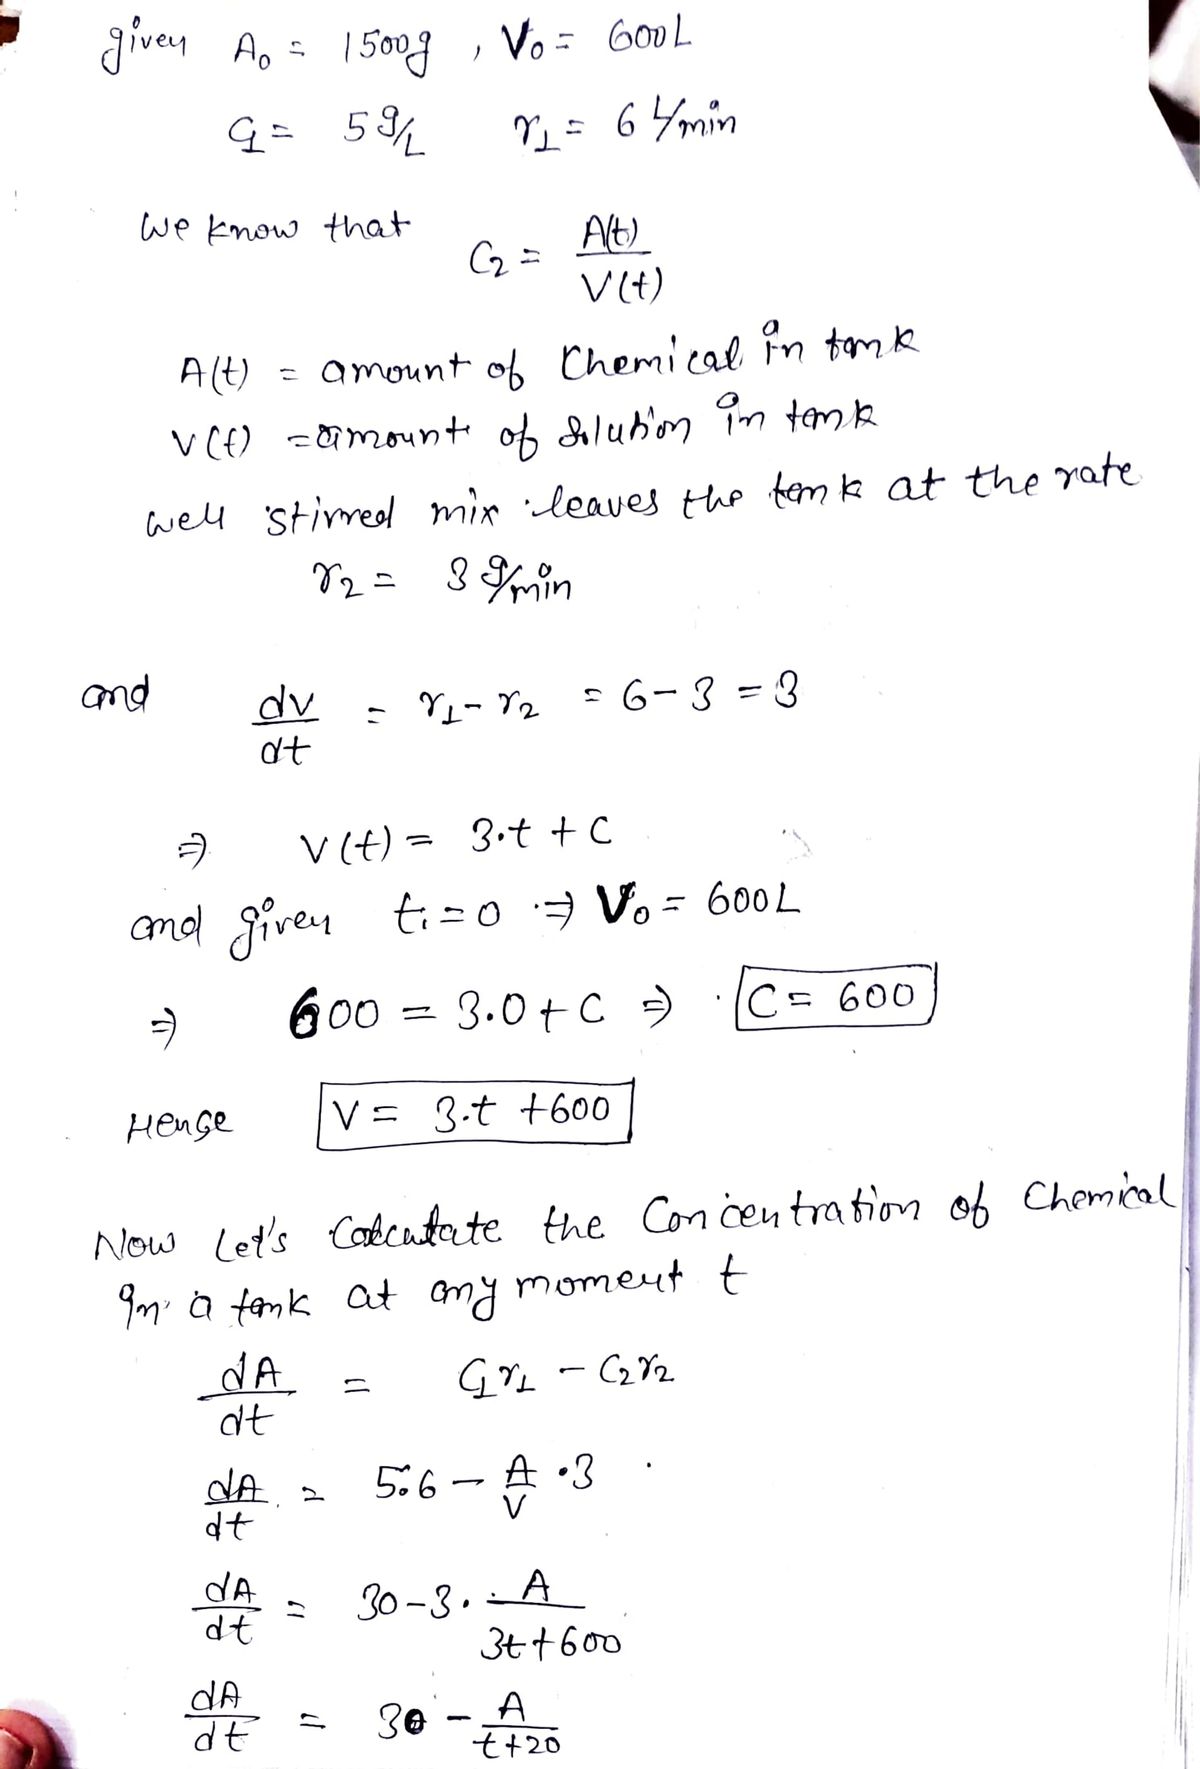 given A₀ = 1500g , V₀ = 600L
C₁ = 5 g/L r₁ = 6 L/min
We know that C₂ = A(t)/V(t)
A(t) = amount of Chemical in tank
V(t) = amount of solution in tank
well stirred mix leaves the tank at the rate
r₂ = 3 g/min
and dv/dt = r₁ - r₂ = 6 - 3 = 3
⇒ V(t) = 3·t + C
and given t = 0 ⇒ V₀ = 600L
⇒ 600 = 3·0 + C ⇒ C = 600
Hence V = 3·t + 600
Now Let's Calculate the Concentration of Chemical
In a tank at any moment t
dA/dt = C₁r₁ - C₂r₂
dA/dt = 5·6 - A/V · 3
dA/dt = 30 - 3 · A/3t+600
dA/dt = 30 - A/t+20